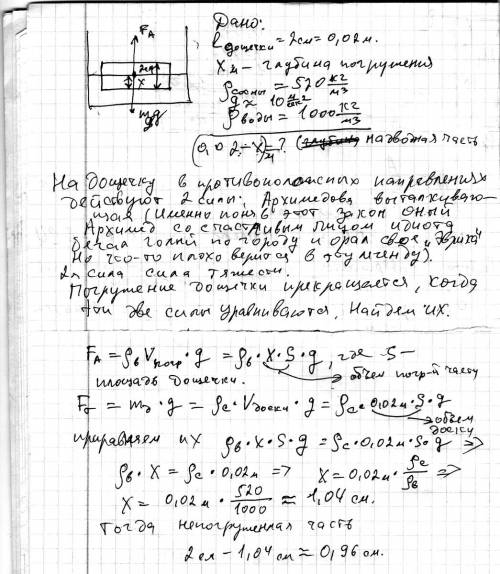 Дано:
F_A
l дощечки = 2см = 0,02 м.
2см
X
X м - глубина погружения
ρ сосны = 520 кг/м3
mg
g ≈ 10 м/с2
ρ воды = 1000 кг/м3
(0,02 - X) м = ? (надводная часть
На дощечку в противоположных направлениях
действуют 2 силы. Архимедова выталкиваю-
щая (Именно поняв этот закон оный
Архимед со счастливым лицом идиота
бегал голый по городу и орал своё "Эврика"
Но что-то плохо верится в эту легенду).
2я сила сила тяжести.
Погружение дощечки прекращается, когда
эти две силы уравниваются, Найдем их.
F_A = ρв V погр · g = ρв · X · S · g, где S -
объем погр-й части
площадь дощечки.
F = m · g = ρс · V доски · g = ρс · 0,02м · S · g
объем доски
приравняем их ρв · X · S · g = ρс · 0,02м · S · g =>
ρв · X = ρс · 0,02м => X = 0,02м · ρс/ρв =>
X = 0,02м · 520/1000 ≈ 1,04 см.
Тогда непогруженная часть
2см - 1,04 см ≈ 0,96 см.